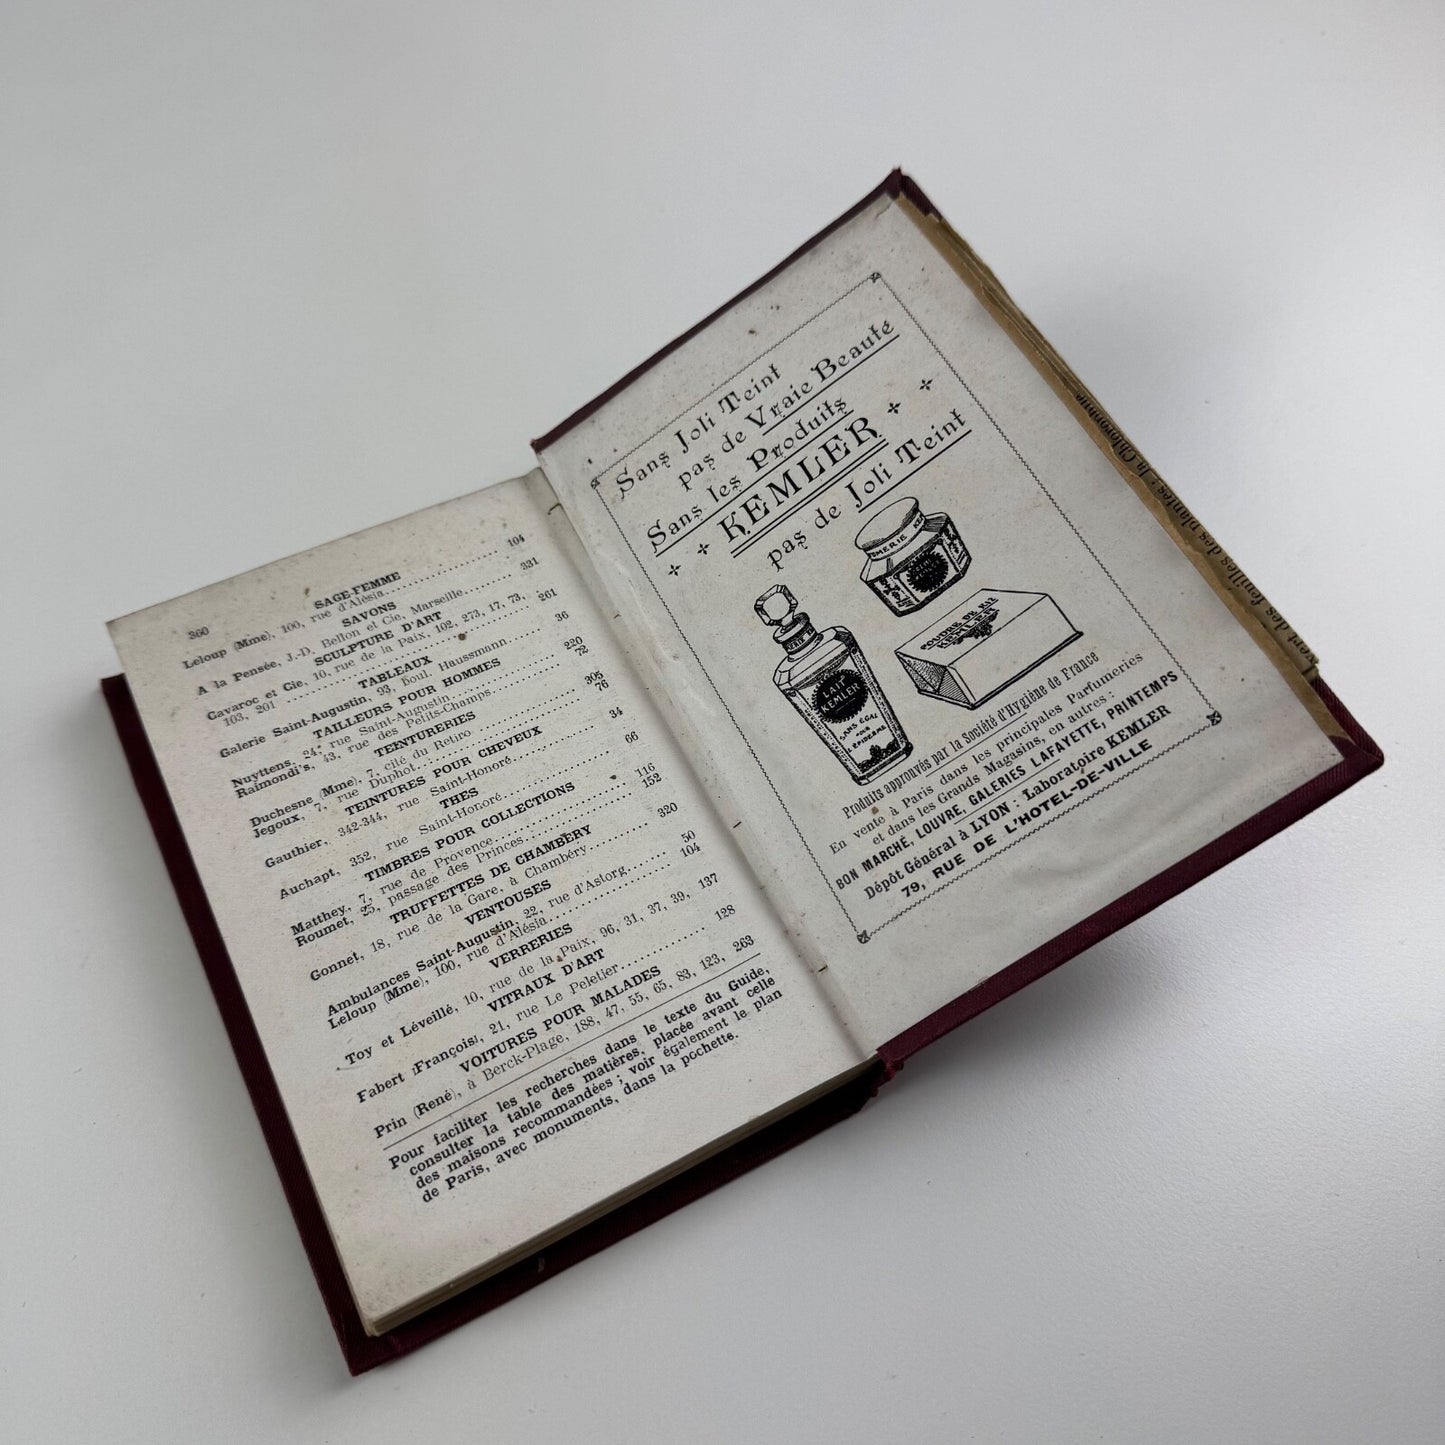 360
SAGE-FEMME
Leloup (Mme), 100, rue d'Alésia 104
SAVONS
A la Pensée, J.-D. Bellon et Cie, Marseille 331
SCULPTURE D'ART
Cavaroc et Cie, 10, rue de la Paix, 102, 273, 17, 73,
103, 201 261
TABLEAUX
Galerie Saint-Augustin, 93, Boul. Haussmann 36
TAILLEURS POUR HOMMES
Nuyttens, 24, rue Saint-Augustin 220
Raimondi's, 43, rue des Petits-Champs 72
TEINTURERIES
Duchesne (Mme), 7, cité du Retiro 305
Jegoux, 7, rue Duphot 76
TEINTURES POUR CHEVEUX
Gauthier, 342-344, rue Saint-Honoré 34
THES
Auchapt, 352, rue Saint-Honoré 66
TIMBRES POUR COLLECTIONS
Matthey, 7, rue de Provence 116
Roumet, 25, passage des Princes 152
TRUFFETTES DE CHAMBÉRY
Gonnet, 18, rue de la Gare, à Chambéry 320
VENTOUSES
Ambulances Saint-Augustin, 22, rue d'Astorg 50
Leloup (Mme), 100, rue d'Alésia 104
VERRERIES
Toy et Léveillé, 10, rue de la Paix, 96, 31, 37, 39, 137
VITRAUX D'ART
Fabert (François), 21, rue Le Peletier 128
VOITURES POUR MALADES
Prin (René), à Berck-Plage, 188, 47, 55, 65, 83, 123, 263
Pour faciliter les recherches dans le texte du Guide,
consulter la table des matières, placée avant celle
des maisons recommandées ; voir également le plan
de Paris, avec monuments, dans la pochette.
Sans Joli Teint
pas de Vraie Beauté
Sans les Produits
KEMLER
pas de Joli Teint
LAIT
KEMLER
SANS ÉGAL
POUR
L'ÉPIDERME
POUDRE DE RIZ
KEMLER
Produits approuvés par la Société d'Hygiène de France
En vente à Paris dans les principales Parfumeries
et dans les Grands Magasins, en autres :
BON MARCHÉ, LOUVRE, GALERIES LAFAYETTE, PRINTEMPS
Dépôt Général à LYON : Laboratoire KEMLER
79, RUE DE L'HOTEL-DE-VILLE
des feuilles des plantes : la Chlorophylle